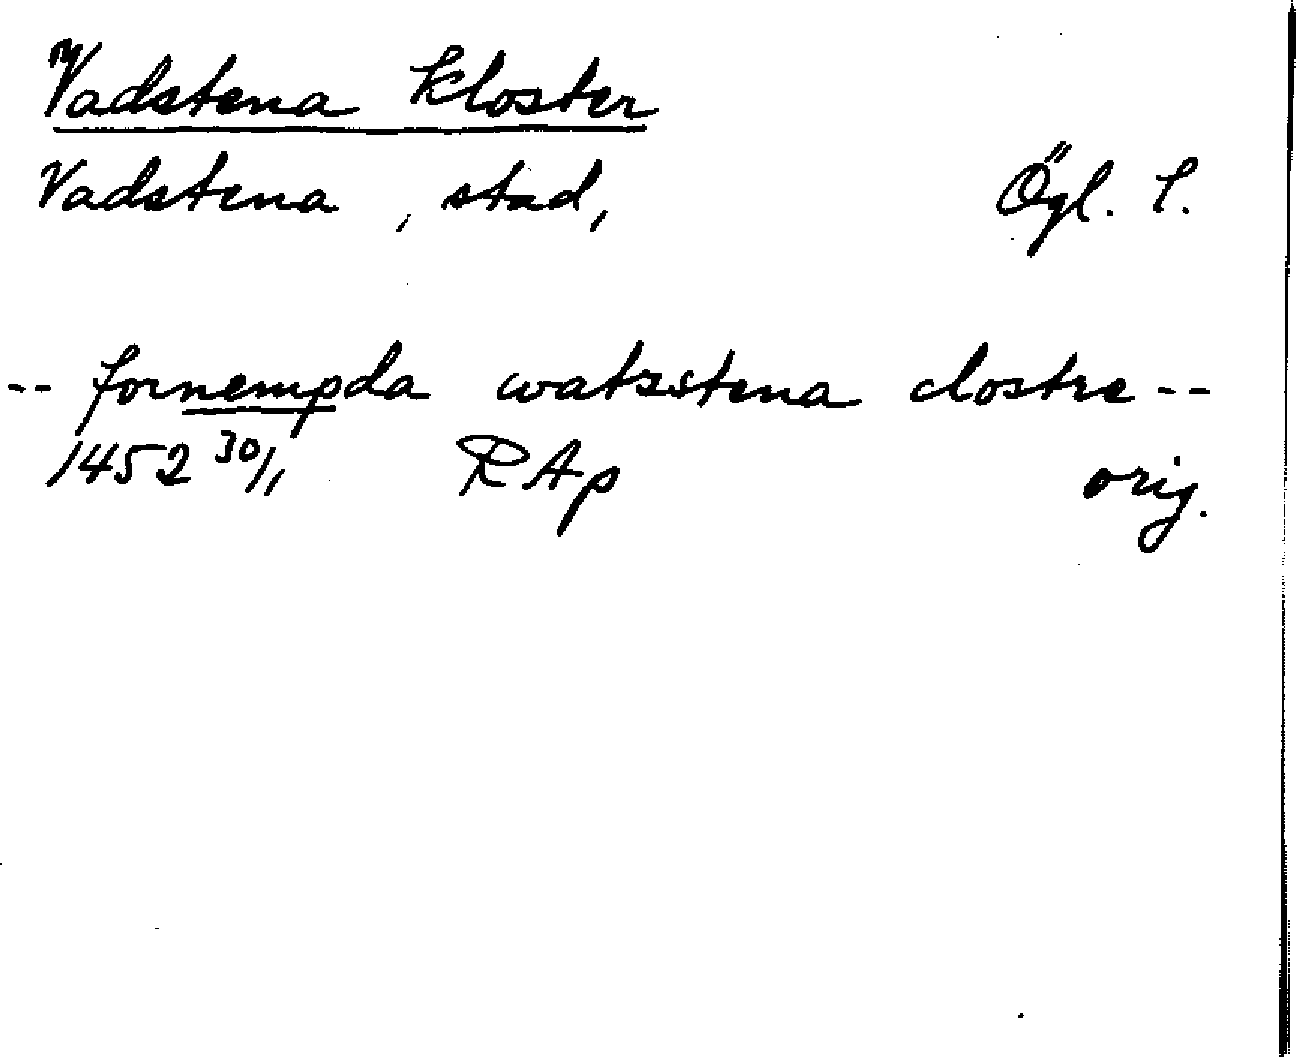 Vadstena kloster
Vadstena, stad, Ögl. l.
-- fornempda watzstena clostre --
1452 30/1 RAp orig.